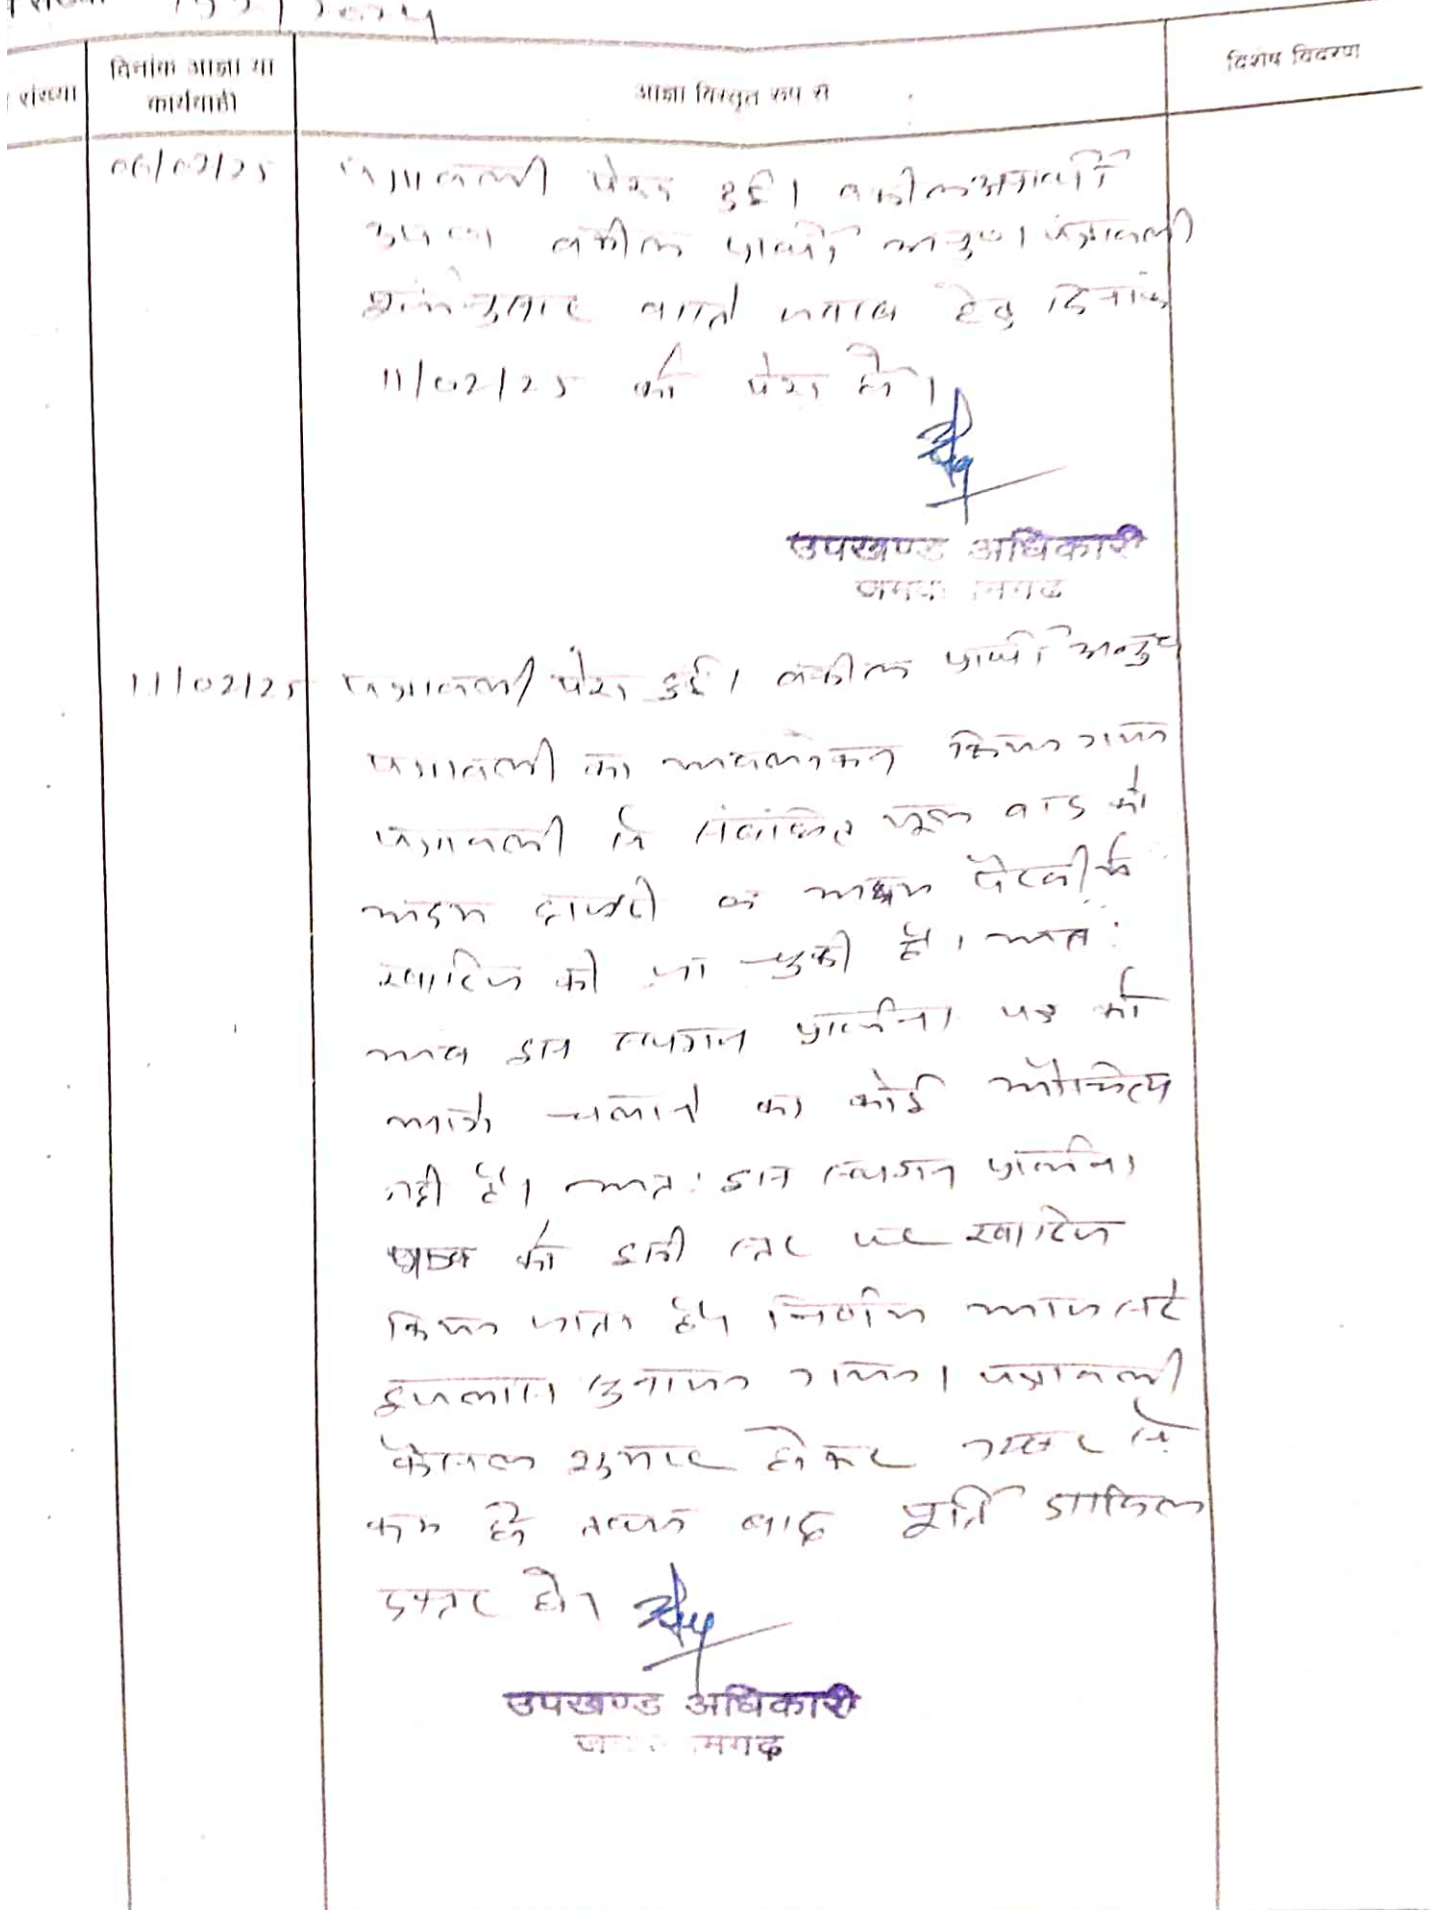 संख्या
दिनांक आज्ञा या कार्यवाही
आज्ञा विस्तृत रूप से
विशेष विवरण
06/02/25 पत्रावली पेश हुई। वकील अप्रार्थी
उप0 वकील प्रार्थी अनु0। पत्रावली
वास्ते जवाब हेतु दिनांक
11/02/25 को पेश हो।
उपखण्ड अधिकारी
11/02/25 पत्रावली पेश हुई। वकील प्रार्थी अनु0
पत्रावली का अवलोकन किया गया
पत्रावली से संबंधित मूल वाद को
अदम हाजरी व अदम पैरवी में
खारिज की जा चुकी है। अतः
अब इस स्थगन प्रार्थना पत्र को
आगे चलाने का कोई औचित्य
नही है। अतः इस स्थगन प्रार्थना
पत्र को इसी स्तर पर खारिज
किया जाता है। निर्णय आज सरे
इजलास सुनाया गया। पत्रावली
फैसल शुमार होकर नम्बर से
कम हो बाद पूर्ति दाखिल
दफ्तर हो।
उपखण्ड अधिकारी